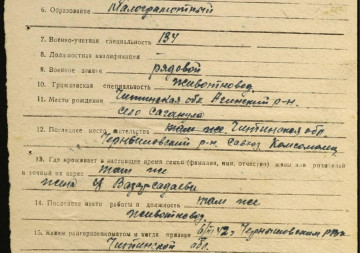 6. Образование Малограмотный
7. Военно-учетная специальность 134
8. Должностная квалификация
9. Военное звание рядовой
10. Гражданская специальность животновод.
11. Место рождения Читинская обл. Агинский р-н.
село
12. Последнее место жительства там же. Читинская обл.
Чернышевский р-н. Совхоз Комсомолец
13. Где проживает в настоящее время семья (фамилия, имя, отчество) жены или родителей
и точный их адрес там же
жена
14. Последнее место работы и должность там же
животновод.
15. Каким райгорвоенкоматом и когда призван 42. Чернышевским РВК
Читинской обл.